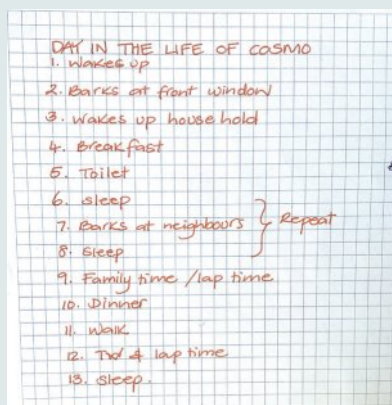 DAY IN THE LIFE OF COSMO
1. Wakes up
2. Barks at front window
3. Wakes up household
4. Breakfast
5. Toilet
6. Sleep
7. Barks at neighbours } Repeat
8. Sleep
9. Family time / lap time
10. Dinner
11. Walk
12. & lap time
13. Sleep.